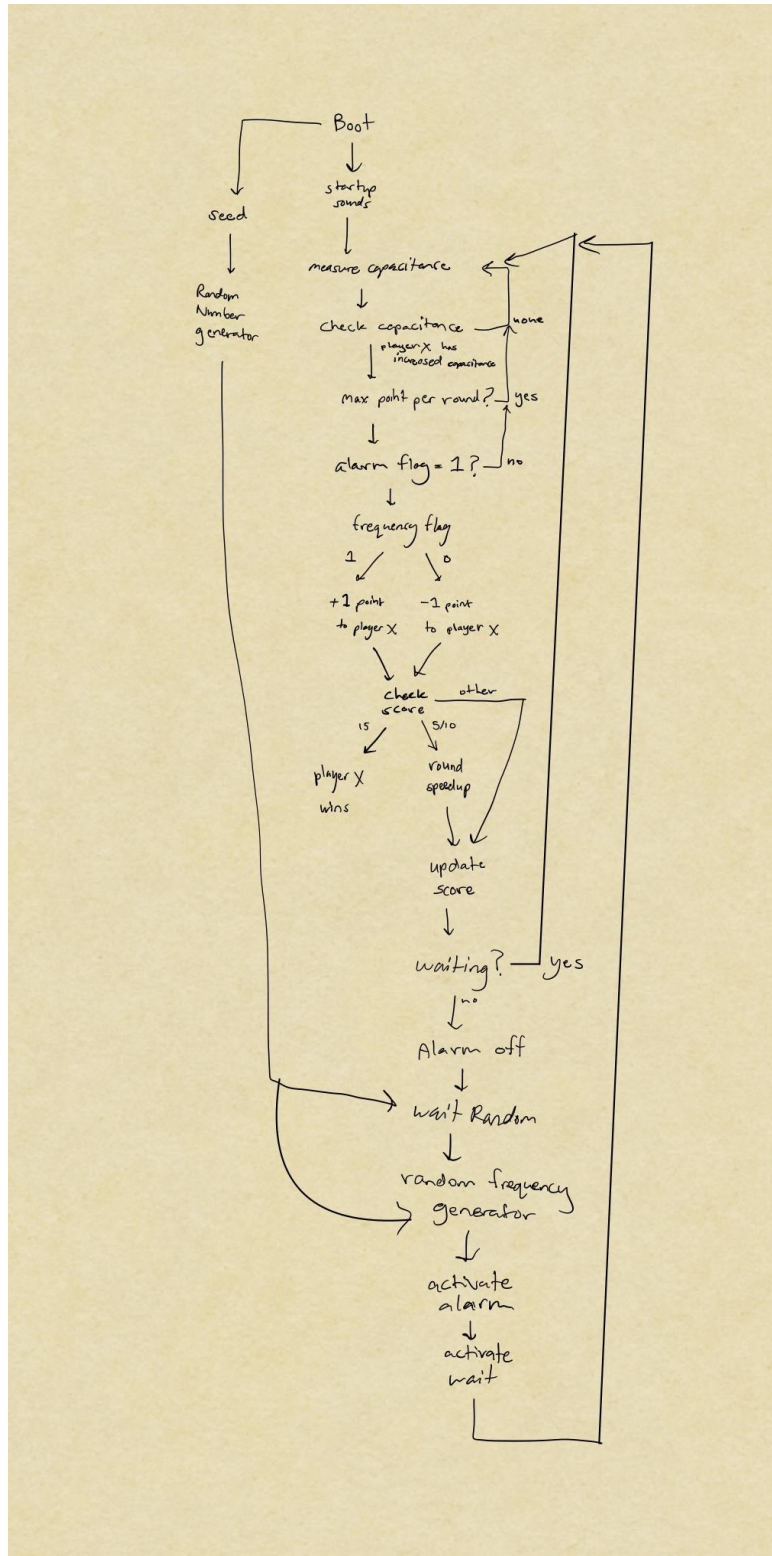 Boot
startup
sounds
seed
Random
Number
generator
measure capacitance
check capacitance
none
player X has
increased capacitance
max point per round?
yes
alarm flag = 1?
no
frequency flag
1
0
+1 point
to player X
-1 point
to player X
check
score
other
15
5/10
player X
wins
round
speedup
update
score
waiting?
yes
no
Alarm off
wait Random
random frequency
generator
activate
alarm
activate
wait